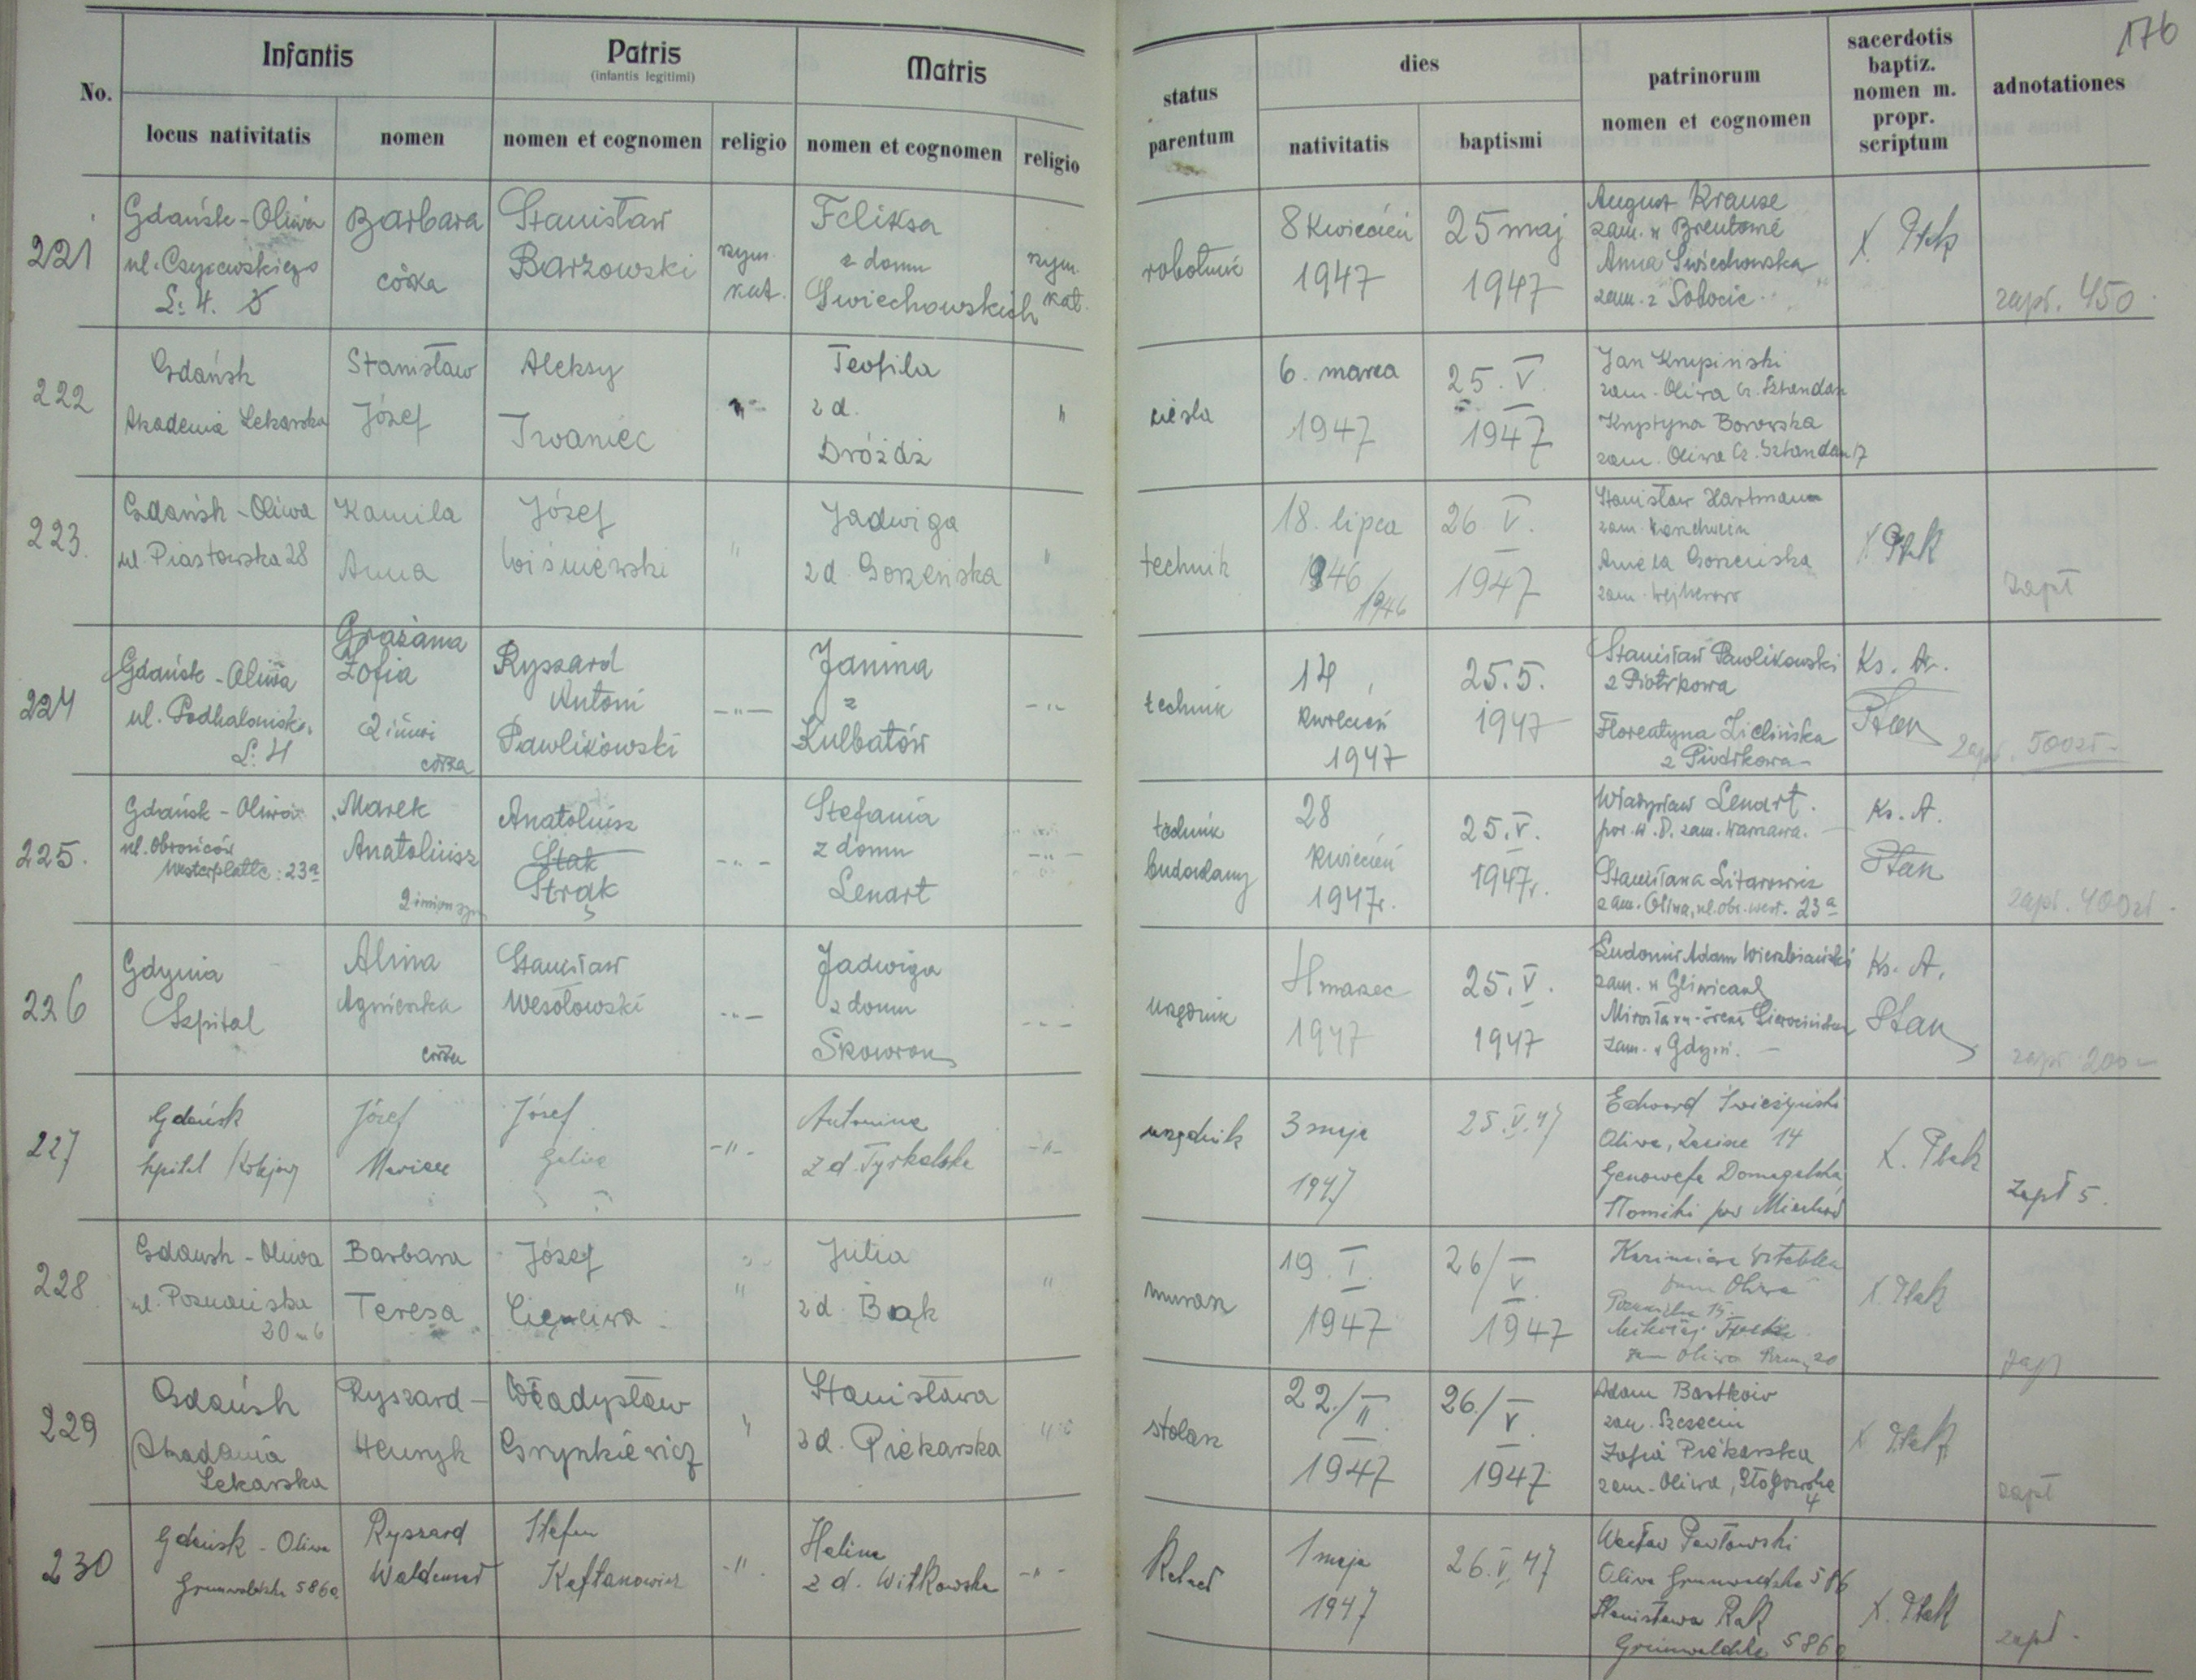 176
No.
Infantis
Patris
(infantis legitimi)
Matris
status parentum
dies
patrinorum nomen et cognomen
sacerdotis baptiz. nomen m. propr. scriptum
adnotationes
locus nativitatis
nomen
nomen et cognomen
religio
nomen et cognomen
religio
nativitatis
baptismi
221
Gdańsk - Oliwa
L: 4.
Barbara
córka
Stanisław
Barzowski
rzym.
kat.
Feliksa
z domu
Swiechowskich
rzym.
kat.
robotnik
8 Kwiecień
1947
25 maj
1947
August Krause
zam. w Brentowie
Anna Swiechowska
zam. z Sobocic
X. Ptak
zapł. 450
222
Gdańsk
Akademia Lekarska
Stanisław
Józef
Aleksy
Iwaniec
"
Teofila
z d.
Dróżdż
"
cieśla
6. marca
1947
25. V.
1947
Jan Krupiński
zam. Oliwa Cz. Sztandar
Krystyna Borowska
zam. Oliwa Cz. Sztandar 17
223.
Gdańsk - Oliwa
ul. Piastowska 28
Kamila
Anna
Józef
Wiśniewski
"
Jadwiga
z d. Gorzeńska
"
technik
18. lipca
1946
/1946
26 V.
1947
Stanisław Hartmann
zam.
Aniela Gorzeńska
zam. Wejherowo
X Ptak
zapł
224
Gdańsk - Oliwa
L: 4
Grażana
Zofia
2 imion
córka
Ryszard
Antoni
Pawlikowski
-"-
Janina
z
Kulbatów
-"-
technik
14
Kwiecień
1947
25.5.
1947
Stanisław Pawlikowski
z Piotrkowa
Zielińska
z Piotrkowa
Ks. A.
Ptan
zapł. 500 zł -
225.
Gdańsk - Oliwa
ul. Obrońców
Westerplatte: 23a
Marek
Anatoliusz
2 imion syn
Anatoliusz
Stak
Strąk
-"-
Stefania
z domu
Lenart
-"-
technik
budowlany
28
Kwiecień
1947r.
25. V.
1947r.
Władysław Lenart.
por. W. P. zam. Warszawa.
Stanisława Litarowicz
zam. Oliwa, ul. Obr. West. 23a
Ks. A.
Ptan
zapł. 400 zł -
226
Gdynia
Szpital
Alina
Agnieszka
córka
Stanisław
Wesołowski
-"-
Jadwiga
z domu
Skowron
-"-
urzędnik
4 marzec
1947
25. V.
1947
Ludomir Adam Wierzbiański
zam. w Gliwicach
zam. w Gdyni. -
Ks. A.
Ptan
zapł 200 -
227
Gdańsk
Szpital Kolejowy
Józef
Marian
Józef
Galica
-"-
Antonina
z d. Tyrkalska
-"-
urzędnik
3 maja
1947
25.V.47
Edward
Oliwa, 14
Genowefa Domagalska
pow Miechów
X. Ptak
zapł 5.
228
Gdańsk - Oliwa
ul. Poznańska
20 m 6
Barbara
Teresa
Józef
"
Julia
z d. Bąk
"
murarz
19. I.
1947
26/V.
1947
Kazimiera
zam Oliwa
Poznańska 15.
Mikołaj
zam Oliwa 20
X. Ptak
zapł
229
Gdańsk
Akademia
Lekarska
Ryszard -
Henryk
Władysław
Grynkiewicz
"
Stanisława
z d. Piekarska
"
stolarz
22./II.
1947
26./V.
1947
Adam Bartkow
zam. Szczecin
Zofia Piekarska
zam. Oliwa,
4
X Ptak
zapł
230
Gdańsk - Oliwa
Grunwaldzka 586a
Ryszard
Waldemar
Stefan
Kaftanowicz
-"-
Halina
z d. Witkowska
-"-
1 maja
1947
26.V.47
Wacław Pawłowski
Oliwa Grunwaldzka 586
Stanisława Rak
Grunwaldzka 586a
X. Ptak
zapł -